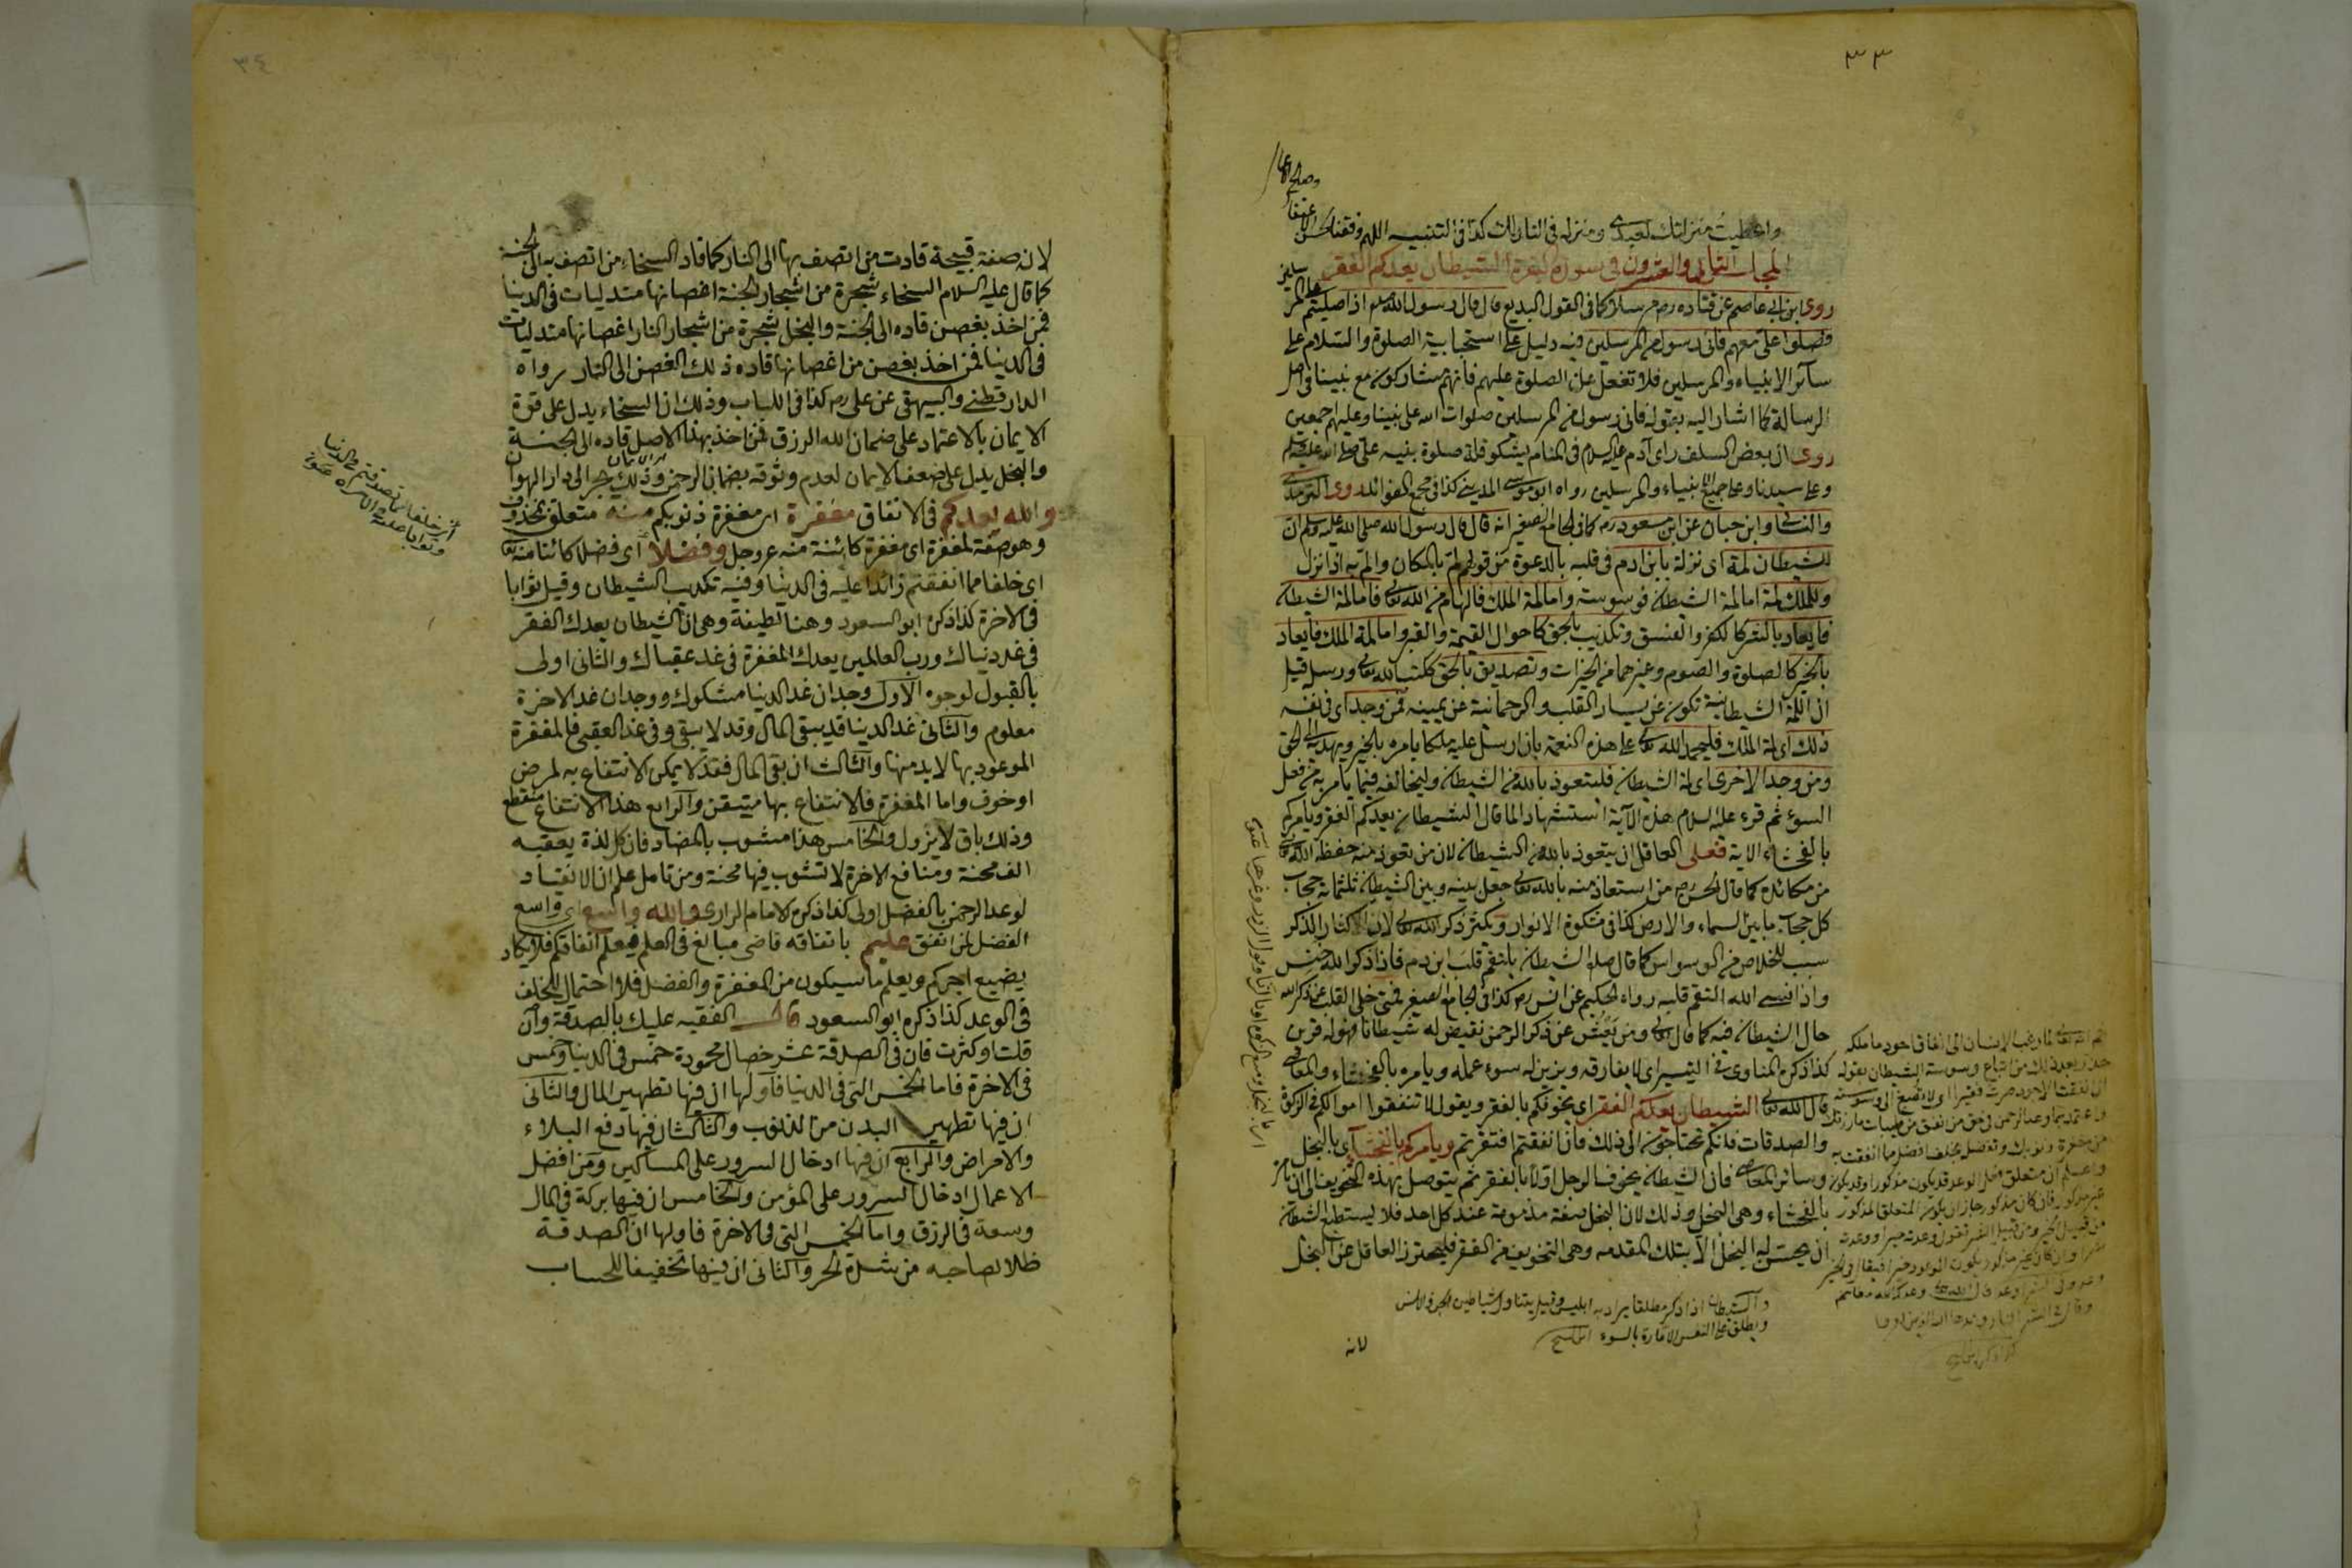 ٣٣
واعطيت منزلتك لعبدى ومنزله فى النار لك كذا فى التنبيه اللهم وفقنا
المجلس الثامن والعشرون فى سورة البقرة الشيطان يعدكم الفقر
روى ابن ابى عاصم عن قتاده رض مرسلا كما فى القول البديع قال قال رسول الله صلعم اذا صليتم على المرسلين
فصلوا على معهم فانى رسول من المرسلين فيه دليل على استحبابية الصلوة والسلام على
سائر الانبياء والمرسلين فلا تغفل عن الصلوة عليهم فانهم مشاركون مع نبينا فى اصل
الرسالة كما اشار اليه بقوله فانى رسول من المرسلين صلوات الله على نبينا وعليهم اجمعين
روى ان بعض السلف راى آدم عليه السلام فى المنام يشكو قلة صلوة بنيه على صلى الله عليه وسلم
وعلى سيدنا وعلى جميع الانبياء والمرسلين رواه ابو موسى المدينى كذا فى مجمع الفوائد روى الترمذى
والنسائى وابن حبان عن ابن مسعود رض كما فى الجامع الصغير انه قال قال رسول الله صلى الله عليه وسلم ان
للشيطان لمة اى نزلة بابن ادم فى قلبه بالدعوة من قولهم لم بالمكان والم به اذا نزل
وللملك لمة اما لمة الشيطان فوسوسته واما لمة الملك فالهام من الله تعالى فاما لمة الشيطان
فايعاد بالشر كالكفر والفسق وتكذيب بالحق كاحوال القيمة والقبر واما لمة الملك فايعاد
بالخير كالصلوة والصوم وغيرهما من الخيرات وتصديق بالحق ككتب الله تعالى ورسله قيل
ان اللمة الشيطانية تكون عن يسار القلب والرحمانية عن يمينه فمن وجد اى فى نفسه
ذلك اى لمة الملك فليحمد الله تعالى على هذه النعمة بان ارسل عليه ملكا يامره بالخير ويهديه الى الحق
ومن وجد الاخرى اى لمة الشيطان فليتعوذ بالله من الشيطان وليخالفه فيما يامر به من فعل
السوء ثم قرء عليه السلام هذه الآية استشهادا لما قال الشيطان يعدكم الفقر ويامركم
بالفحشاء الاية فعلى العاقل ان يتعوذ بالله من الشيطان لان من تعوذ منه حفظه الله تعالى
من مكائده كما قال الحسن رض من استعاذ منه بالله تعالى جعل بينه وبين الشيطان ثلثمائة حجاب
كل حجاب ما بين السماء والارض كذا فى مشكوة الانوار ويكثر ذكر الله تعالى لان اكثار الذكر
سبب للخلاص من الوسواس كما قال صلعم الشيطان يلتقم قلب ابن ادم فاذا ذكر الله خنس
واذا نسى الله التقم قلبه رواه الحكيم عن انس رض كذا فى الجامع الصغير فمتى خلى القلب عن ذكر الله
حال الشيطان فيه كما قال تعالى ومن يعش عن ذكر الرحمن نقيض له شيطانا فهو له قرين
كذا ذكره المناوى فى التيسير اى لا يفارقه ويزين له سوء عمله ويامره بالفحشاء والمعاصى
قال الله تعالى الشيطان يعدكم الفقر اى يخوفكم بالفقر ويقول لا تنفقوا اموالكم فى الزكوة
والصدقات فانكم تحتاجون الى ذلك فان انفقتم افتقرتم ويامركم بالفحشاء اى بالبخل
وسائر المعاصى فان الشيطان يخوف الرجل اولا بالفقر ثم يتوصل بهذه التخويف الى ان يامره
بالفحشاء وهى البخل وذلك لان البخل صفة مذمومة عند كل احد فلا يستطيع الشيطان
ان يحسن له البخل الا بتلك المقدمه وهى التخويف من الفقر فليحترز العاقل عن البخل
والشيطان اذا ذكر مطلقا يراد به ابليس وقيل يتناول شياطين الجن والانس
ويطلق على النفس الامارة بالسوء
لانه
٣٤
لانه صفة قبيحة قادت من اتصف بها الى النار كما قاد السخاء من اتصف به الى الجنة
كما قال عليه السلام السخاء شجرة من اشجار الجنة اغصانها متدليات فى الدنيا
فمن اخذ بغصن قاده الى الجنة والبخل شجرة من اشجار النار اغصانها متدليات
فى الدنيا فمن اخذ بغصن من اغصانها قاده ذلك الغصن الى النار رواه
الدارقطنى والبيهقى عن على رض كذا فى اللباب وذلك ان السخاء يدل على قوة
الايمان بالاعتماد على ضمان الله الرزق فمن اخذ بهذا الاصل قاده الى الجنة
والبخل يدل على ضعف الايمان لعدم وثوقه بضمان الرحمن وذلك يجر الى دار الهوان
والله يعدكم فى الانفاق مغفرة اى مغفرة ذنوبكم منه متعلق بمحذوف
وهو صفة لمغفرة اى مغفرة كائنة منه عز وجل وفضلا اى فضلا كائنا منه تعالى
اى خلفا مما انفقتم زائدا عليه فى الدنيا وفيه تكذيب الشيطان وقيل ثوابا
فى الاخرة كذا ذكره ابو السعود وهنا لطيفة وهى ان الشيطان يعدك الفقر
فى غد دنياك ورب العالمين يعدك المغفرة فى غد عقباك والثانى اولى
بالقبول لوجوه الاول وجدان غد الدنيا مشكوك ووجدان غد الاخرة
معلوم والثانى غد الدنيا قد يبقى المال وقد لا يبقى وفى غد العقبى فالمغفرة
الموعود بها لا بد منها والثالث ان بقى المال فقد لا يمكن الانتفاع به لمرض
او خوف واما المغفرة فالانتفاع بها متيقن والرابع هذا الانتفاع منقطع
وذلك باق لا يزول والخامس هذا مشوب بالمضار فان كل لذة يعقبه
الف محنة ومنافع الاخرة لا تشوب فيها محنة ومن تامل علم ان الانقياد
لوعد الرحمن بالفضل اولى كذا ذكره الامام الرازى والله واسع اى واسع
الفضل لمن انفق عليم بانفاقه قاضى مبالغ فى العلم فيعلم انفاقكم فلا يكاد
يضيع اجركم ويعلم ما سيكون من المغفرة والفضل فلا احتمال للخلف
فى الوعد كذا ذكره ابو السعود قال الفقيه عليك بالصدقة وان
قلت او كثرت فان فى الصدقة عشر خصال محمودة خمس فى الدنيا وخمس
فى الاخرة فاما الخمس التى فى الدنيا فاولها ان فيها تطهير المال والثانى
ان فيها تطهير البدن من الذنوب والثالث ان فيها دفع البلاء
والامراض والرابع ان فيها ادخال السرور على المساكين ومن افضل
الاعمال ادخال السرور على المؤمن والخامس ان فيها بركة فى المال
وسعة فى الرزق واما الخمس التى فى الاخرة فاولها ان الصدقة
ظلا لصاحبه من شدة الحر والثانى ان فيها تخفيفا للحساب